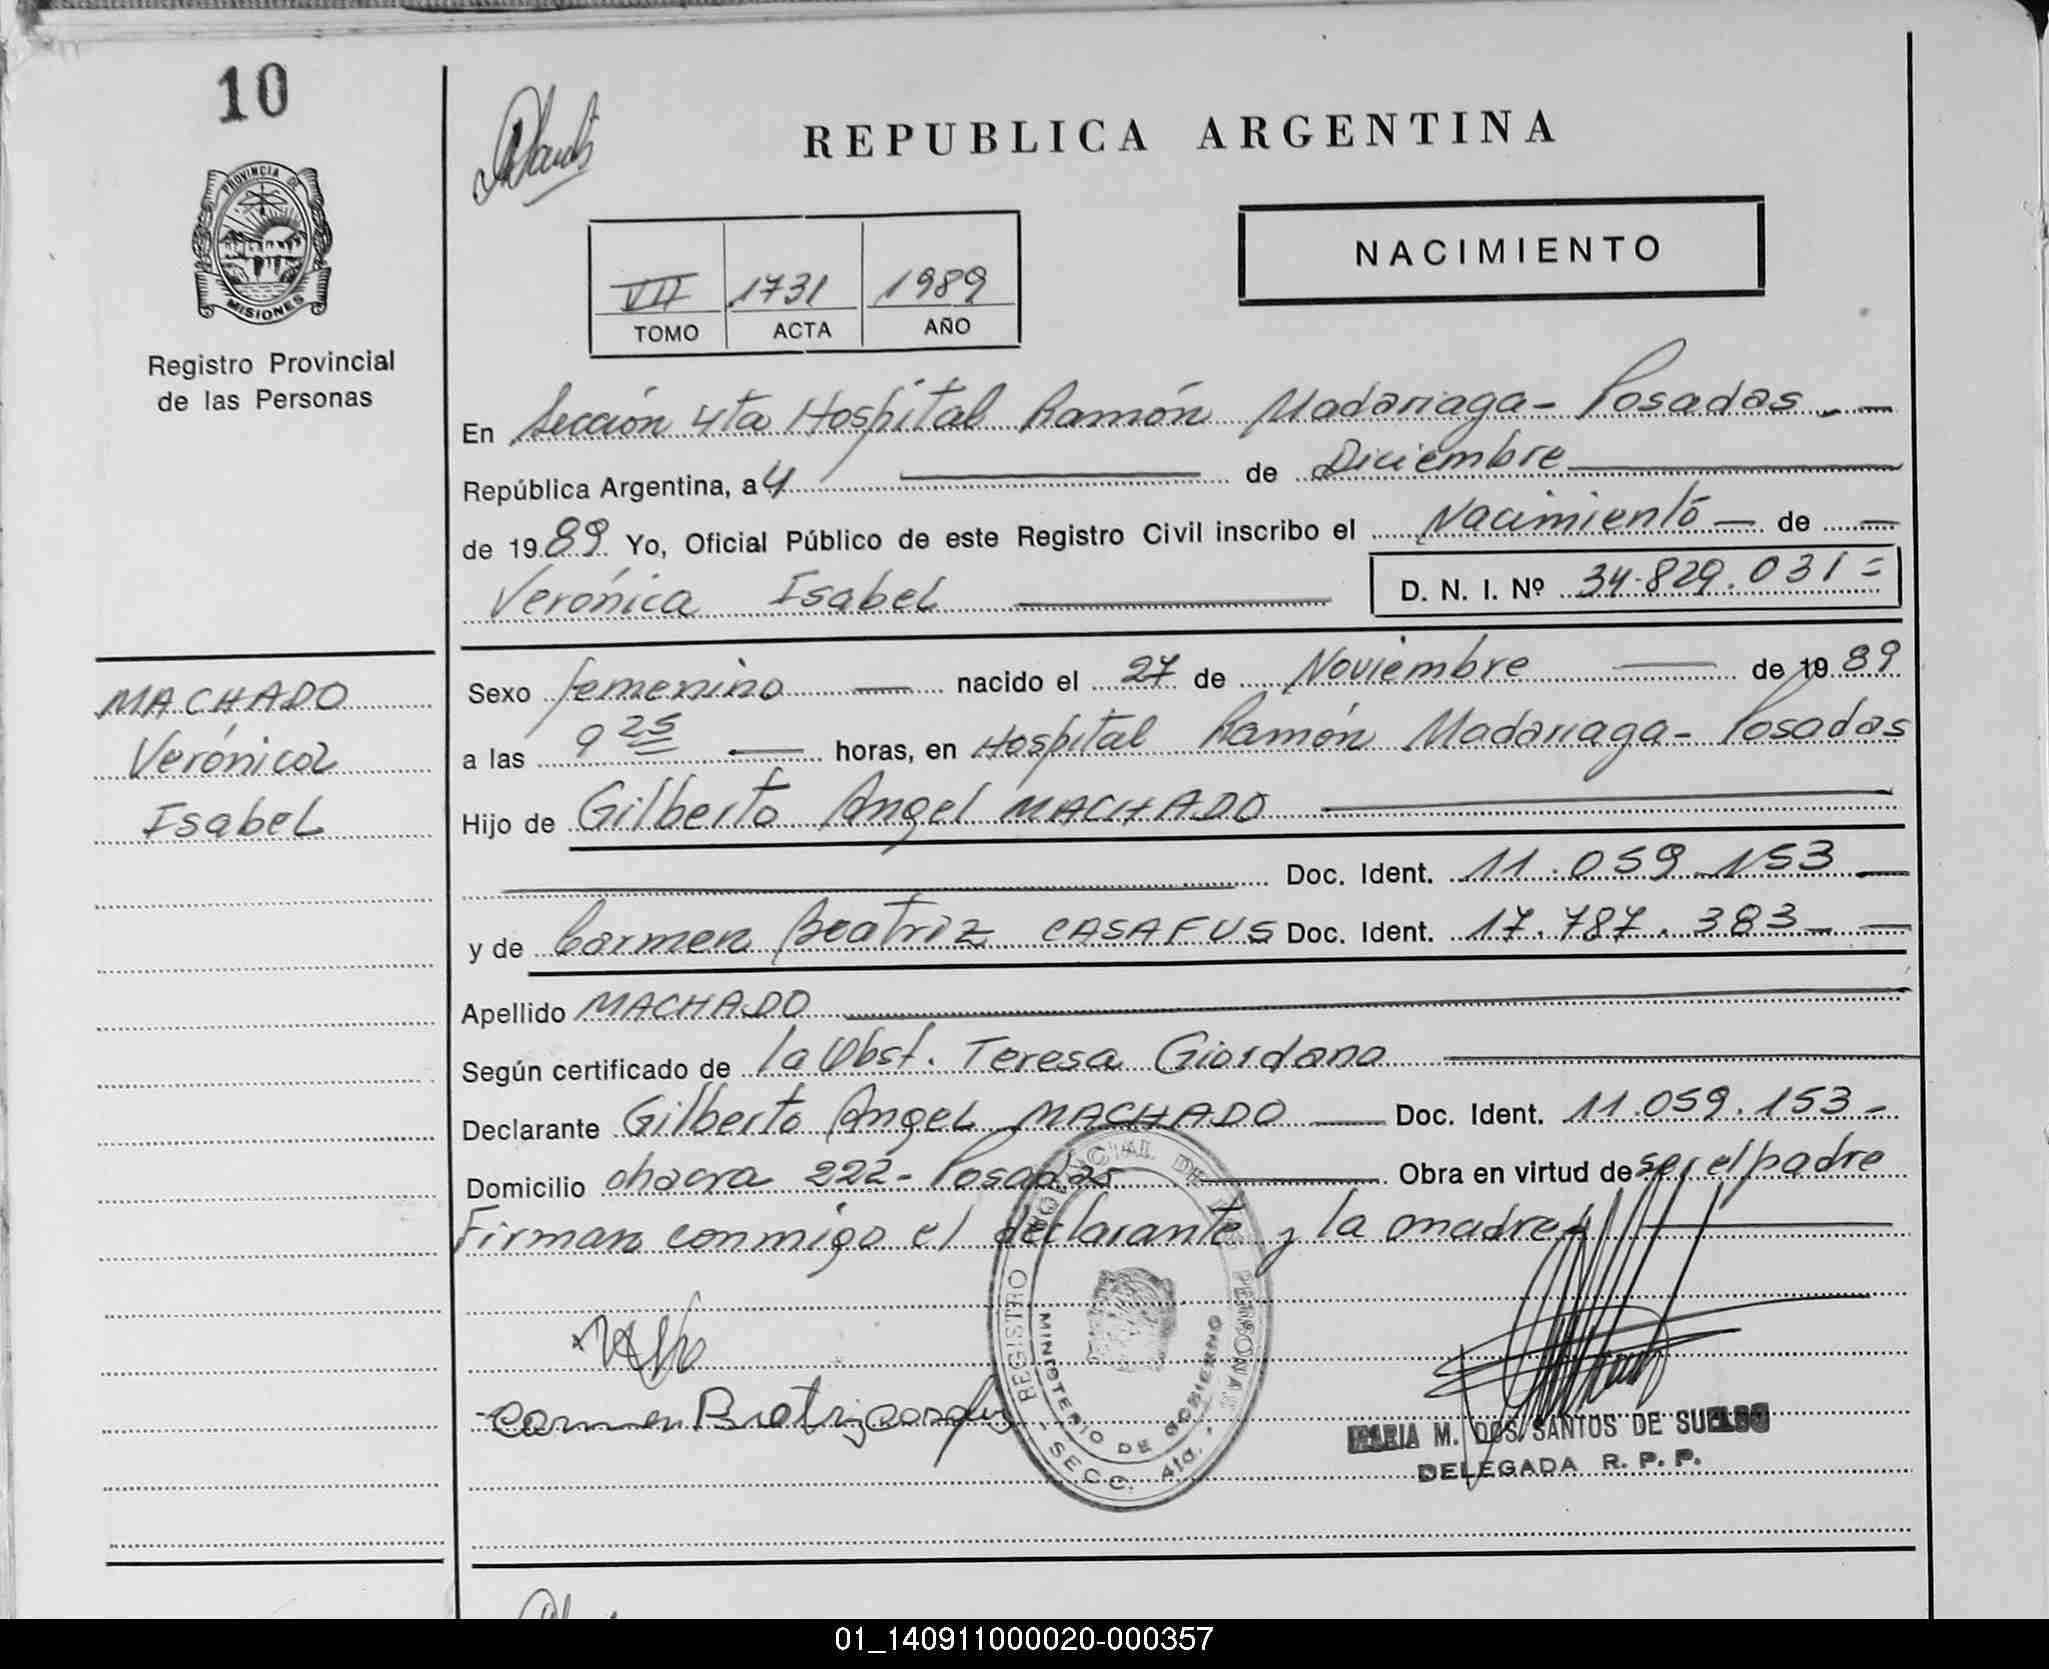 10
REPUBLICA ARGENTINA
PROVINCIA DE
MISIONES
Registro Provincial
de las Personas
NACIMIENTO
VII 1731 1989
TOMO ACTA AÑO
En Sección 4ta Hospital Ramón Madariaga - Posadas. —
República Argentina, a 4 — de Diciembre —
de 1989 Yo, Oficial Público de este Registro Civil inscribo el Nacimiento — de —
Verónica Isabel — D. N. I. Nº 34.829.031 =
MACHADO
Verónica
Isabel
Sexo femenino — nacido el 27 de Noviembre — de 1989
a las 9 25 — horas, en Hospital Ramón Madariaga - Posadas
Hijo de Gilberto Angel MACHADO —
— Doc. Ident. 11.059.153 —
y de Carmen Beatriz CASAFUS Doc. Ident. 17.787.383 — —
Apellido MACHADO —
Según certificado de la Obst. Teresa Giordano —
Declarante Gilberto Angel MACHADO — Doc. Ident. 11.059.153 -
Domicilio chacra 222 - Posadas — Obra en virtud de ser el padre
Firman conmigo el declarante y la madre. —
REGISTRO PROVINCIAL DE LAS PERSONAS
MINISTERIO DE GOBIERNO
- SECC. 4ta. -
Carmen Beatriz
MARIA M. DOS SANTOS DE
DELEGADA R. P. P.
01_140911000020-000357